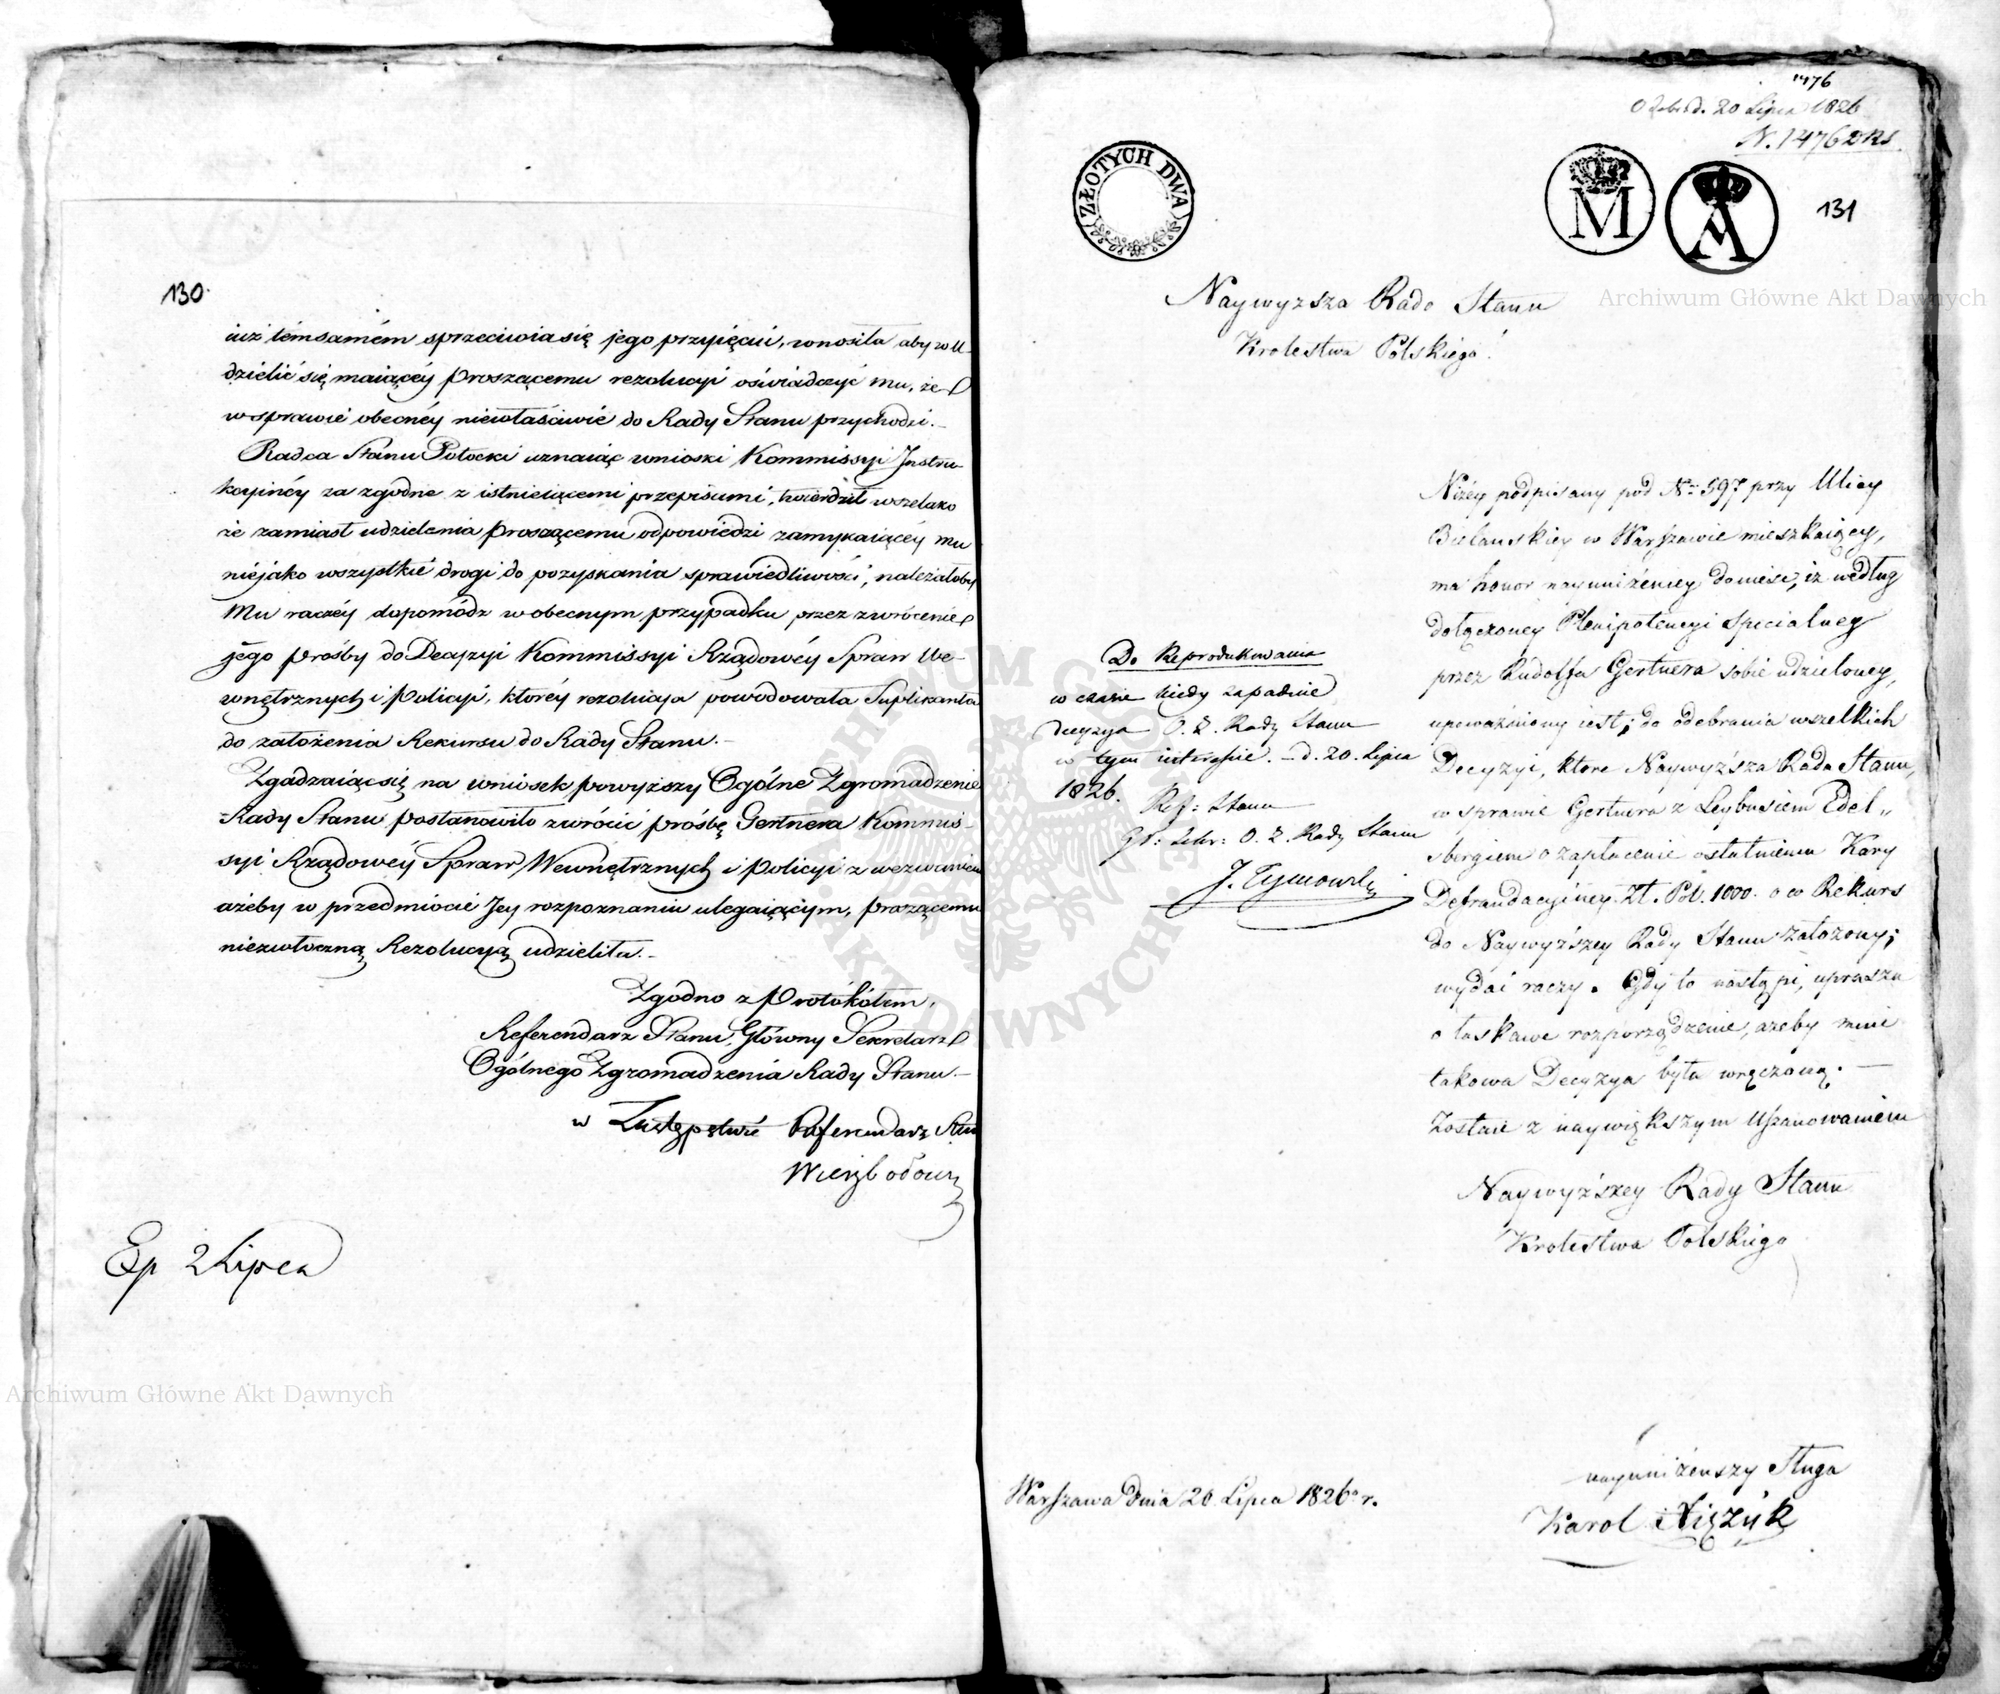 130.
iuż témsamém sprzeciwia się jego przyięciu, wnosiła aby w u-
dzielić się maiącéy proszącemu rezolucyi oświadczyć mu, że
w sprawie obecnéy niewłaściwie do Rady Stanu przychodzi.
Radca Stanu Potocki uznaiąc wnioski Kommissyi Instru-
kcyinéy za zgodne z istnieiącemi przepisami, twierdził wszelako
że zamiast udzielenia proszącemu odpowiedzi zamykaiącéy mu
niejako wszystkie drogi do pozyskania sprawiedliwości, należałoby
mu raczéy dopomódz w obecnym przypadku przez zwrócenie
jego prośby do Decyzyi Kommissyi Rządowéy Spraw We-
wnętrznych i Policyi, któréy rezolucya powodowała Suplikanta
do założenia Rekursu do Rady Stanu.–
Zgadzaiąc się na wniosek powyższy Ogólne Zgromadzenie
Rady Stanu postanowiło zwrócić prośbę Gertnera Kommis-
syi Rządowéy Spraw Wewnętrznych i Policyi z wezwaniem
ażeby w przedmiocie Jey rozpoznaniu ulegaiącym, proszącemu
niezwłoczną Rezolucyą udzieliła.–
Zgodno z Protokółem.
Referendarz Stanu, Główny Sekretarz
Ogólnego Zgromadzenia Rady Stanu.–
w Zastępstwie Referendarz Stanu
Ep 2 Lipca
1476
Odebrd. 20 Lipca 1826
N. 1476
131
ZŁOTYCH DWA
M
A
Naywyzsza Rado Stanu
Krolestwa Polskiego!
Niżéy podpisany pod Nr 597 przy Ulicy
Bielanskiey w Warszawie mieszkaięcy,
ma honor nayuniżeniey donieść, iż według
dołączoney Plenipotencyi specialney
przez Rudolfa Gertnera sobie udzieloney,
upoważniony iest; do odebrania wszelkich
Decyzyi, ktore Naywyższa Rada Stanu,
w sprawie Gertnera z Leybusiem Edel„
bergiem o zapłacenie ostatniemu Kary
Defraudacyiney Zł. Pol. 1000. o w Rekurs
do Naywyższey Rady Stanu założony;
wydać raczy. Gdy to nastąpi, uprasza
o łaskawe rozporządzenie, ażeby mnie
takowa Decyzya była wręczoną. —
Zostaie z naywiększym Uszanowaniem
Naywyższey Rady Stanu
Krolestwa Polskiego
Do Reprodukowania
w czasie kiedy zapadnie
decyzya O. Z. Rady Stanu
w tym interessie. – d. 20. Lipca
1826.
Ref: Stanu
Gł: Sekr: O. Z. Rady Stanu
J. Tymowski
Warszawa dnia 20 Lipca 1826 r.
nayuniżenszy Sługa
Karol
Archiwum Główne Akt Dawnych
Archiwum Główne Akt Dawnych
ARCHIWUM GŁÓWNE AKT DAWNYCH